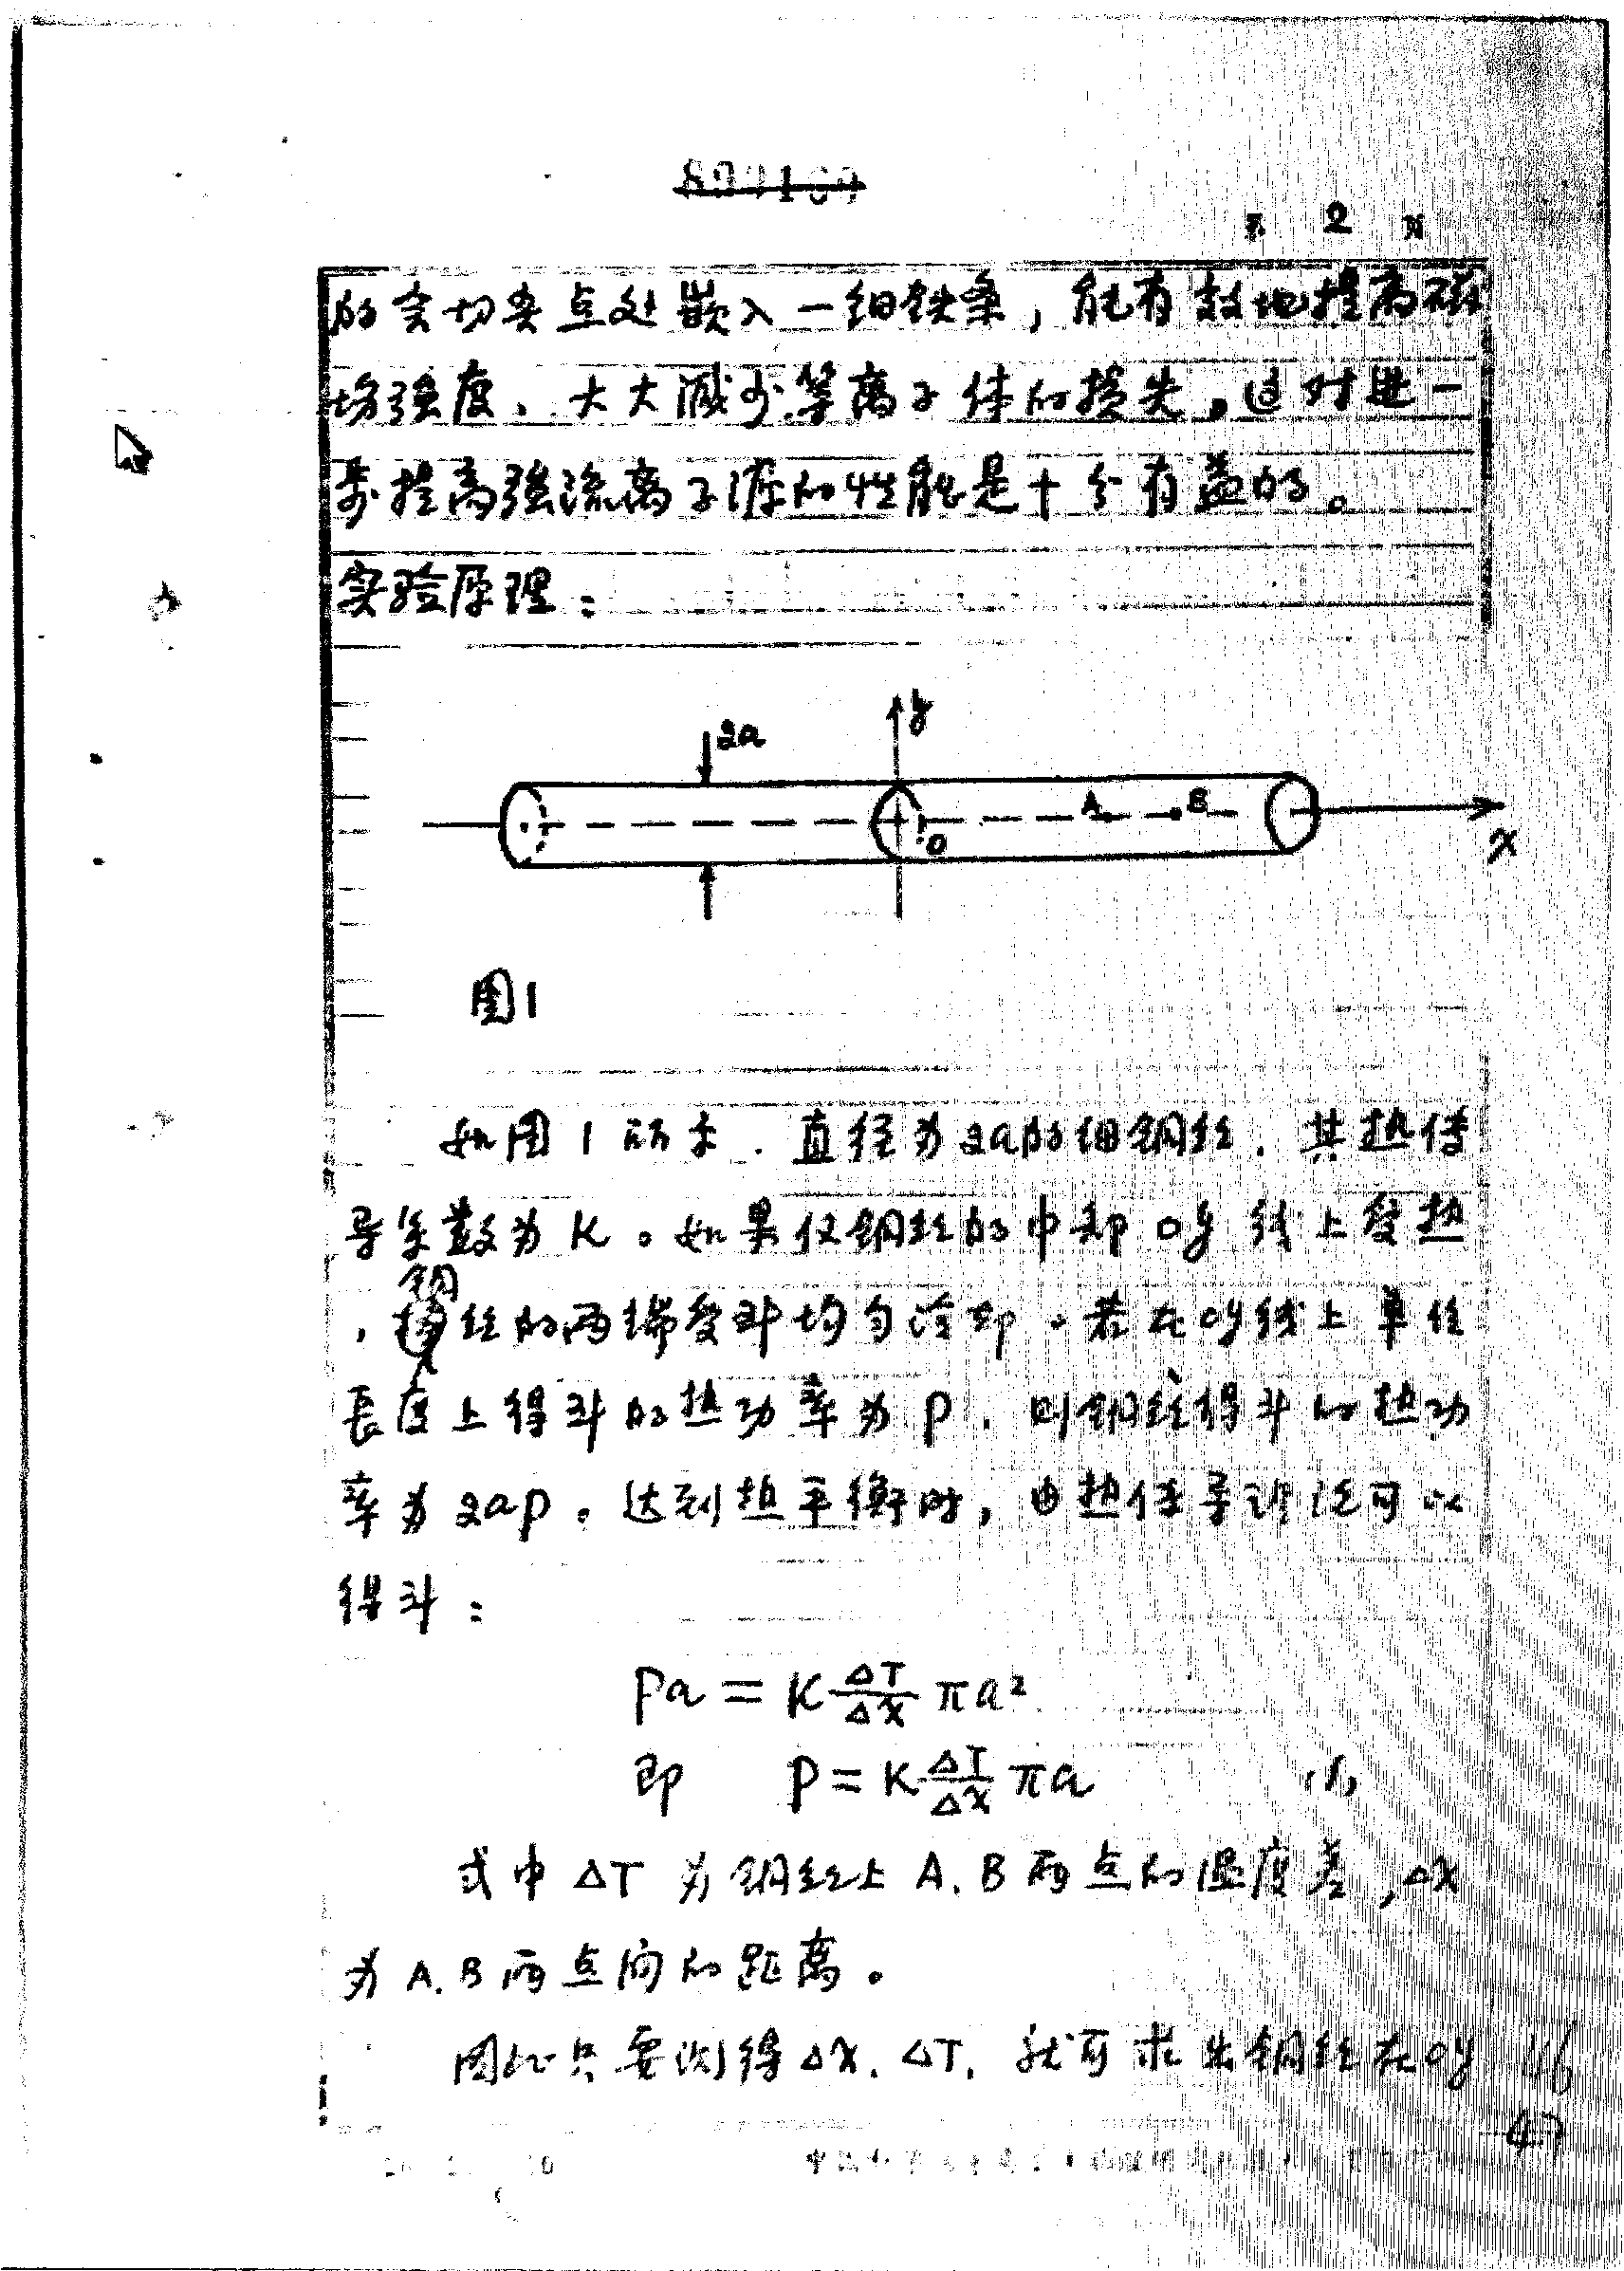 2
的会切夹点处嵌入一细铁条，能有效地提高磁
场强度、大大减少等离子体的损失，这对进一
步提高强流离子源的性能是十分有益的。
实验原理：
2a
y
A
B
O
x
图1
如图1所示．直径为2a的细钢丝．其热传
导系数为K。如果仅钢丝的中部oy线上受热
钢
，丝的两端受到均匀冷却．若在oy线上单位
長度上得到的热功率为P．则钢丝得到的热功
率为2aP。达到热平衡时，由热传导理论可以
得到：
Pa = K ΔT/Δx πa²
即 P = K ΔT/Δx πa (1)
式中 ΔT 为钢丝上 A.B 两点的温度差，Δx
为 A.B 两点间的距离。
因此只要测得 Δx．ΔT．就可求出钢丝在oy
47